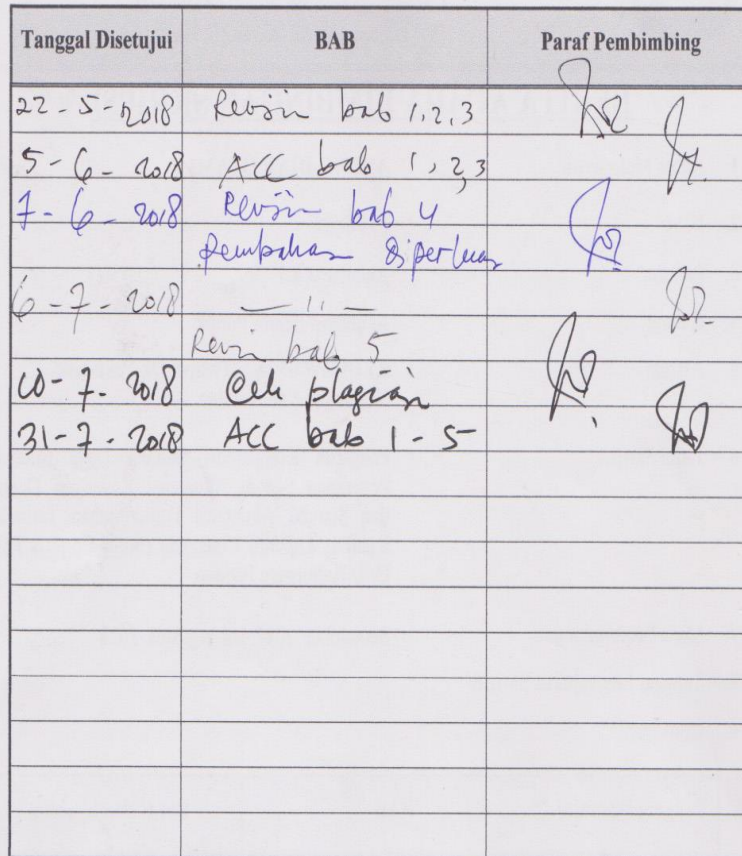 Tanggal Disetujui BAB Paraf Pembimbing
22 - 5 - 2018 Revisi bab 1,2,3
5 - 6 - 2018 ACC bab 1, 2, 3
7 - 6 - 2018 Revisi bab 4
Pembahasan diperluas
6 - 7 - 2018 — 11 —
Revisi bab 5
10 - 7 - 2018 Cek plagiasi
31 - 7 - 2018 ACC bab 1 - 5